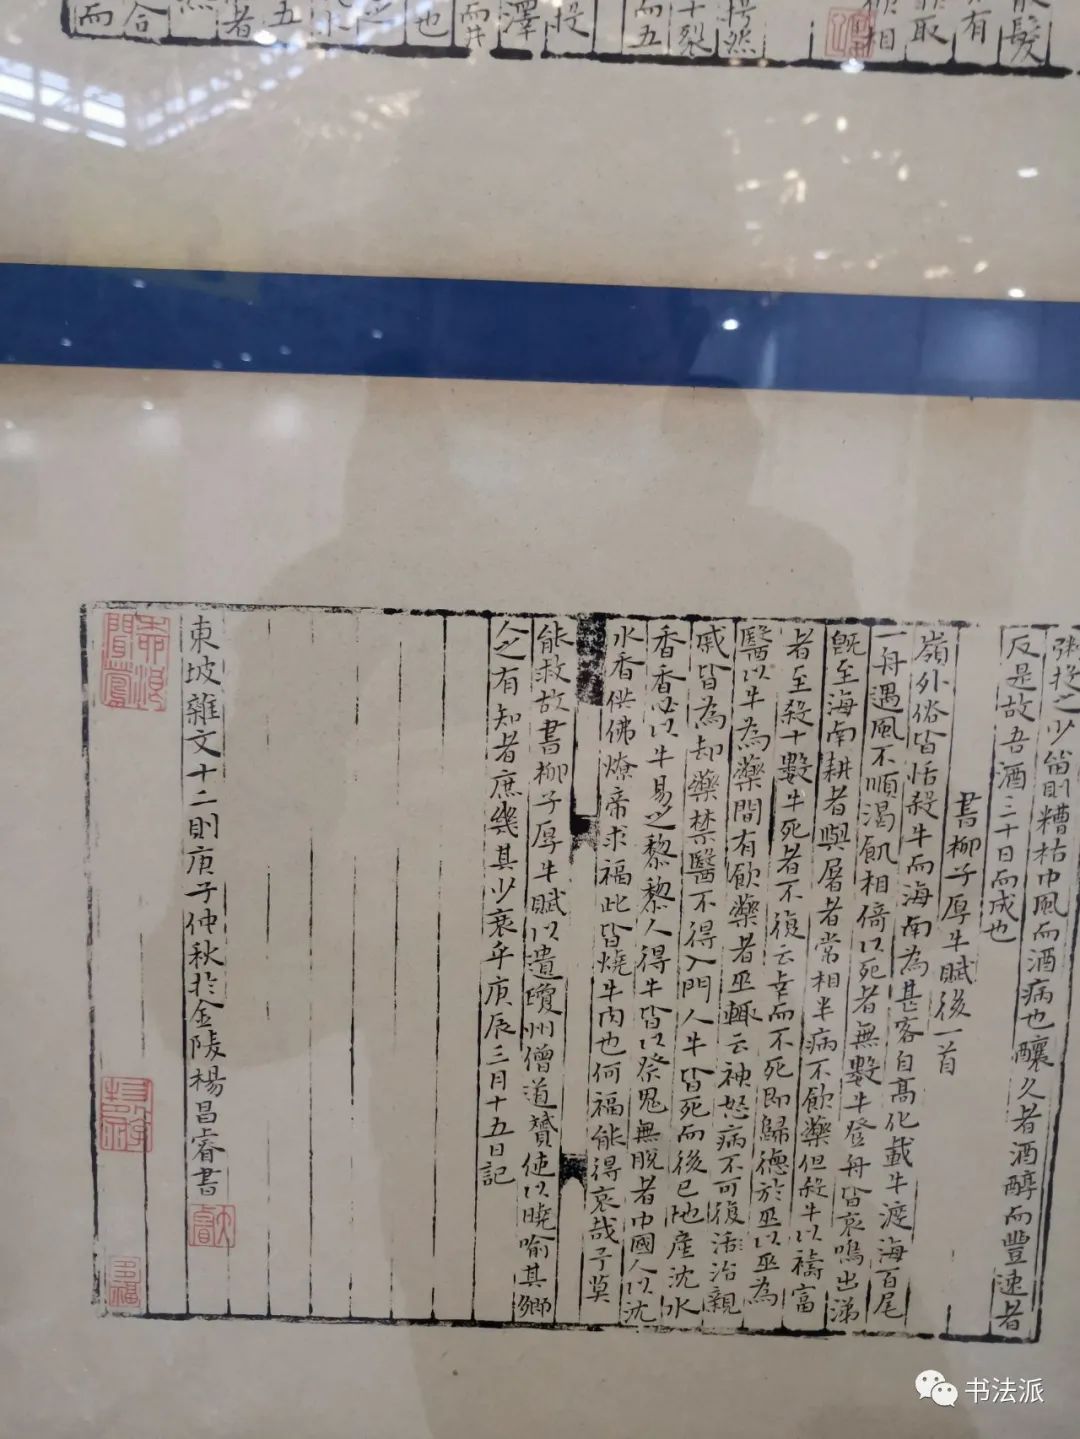 髮
有
取
相
愕然
十裂
而五
投
澤
而井
也
之
水
五
者
合
而
粥投之少笛則糟枯巾風而酒病也釀久者酒醇而豐速者
反是故吾酒三十日而成也
書柳子厚牛賦後一首
嶺外俗皆恬殺牛而海南為甚客自高化載牛渡海百尾
一舟遇風不順渴飢相倚以死者無數牛登舟皆哀鳴出涕
既至海南耕者與屠者常相半病不飲藥但殺牛以禱富
者至殺十數牛死者不復云幸而不死即歸德於巫以巫為
醫以牛為藥間有飲藥者巫輒云神怒病不可復活治親
戚皆為却藥禁醫不得入門人牛皆死而後已地產沈水
香香必以牛易之黎黎人得牛皆以祭鬼無脫者巾國人以沈
水香供佛燎帝求福此皆燒牛肉也何福能得哀哉予莫
能救故書柳子厚牛賦以遺瓊州僧道贇使以曉喻其鄉
人之有知者庶幾其少衰乎庚辰三月十五日記
東坡雜文十二則庚子仲秋於金陵楊昌睿書
多福
书法派